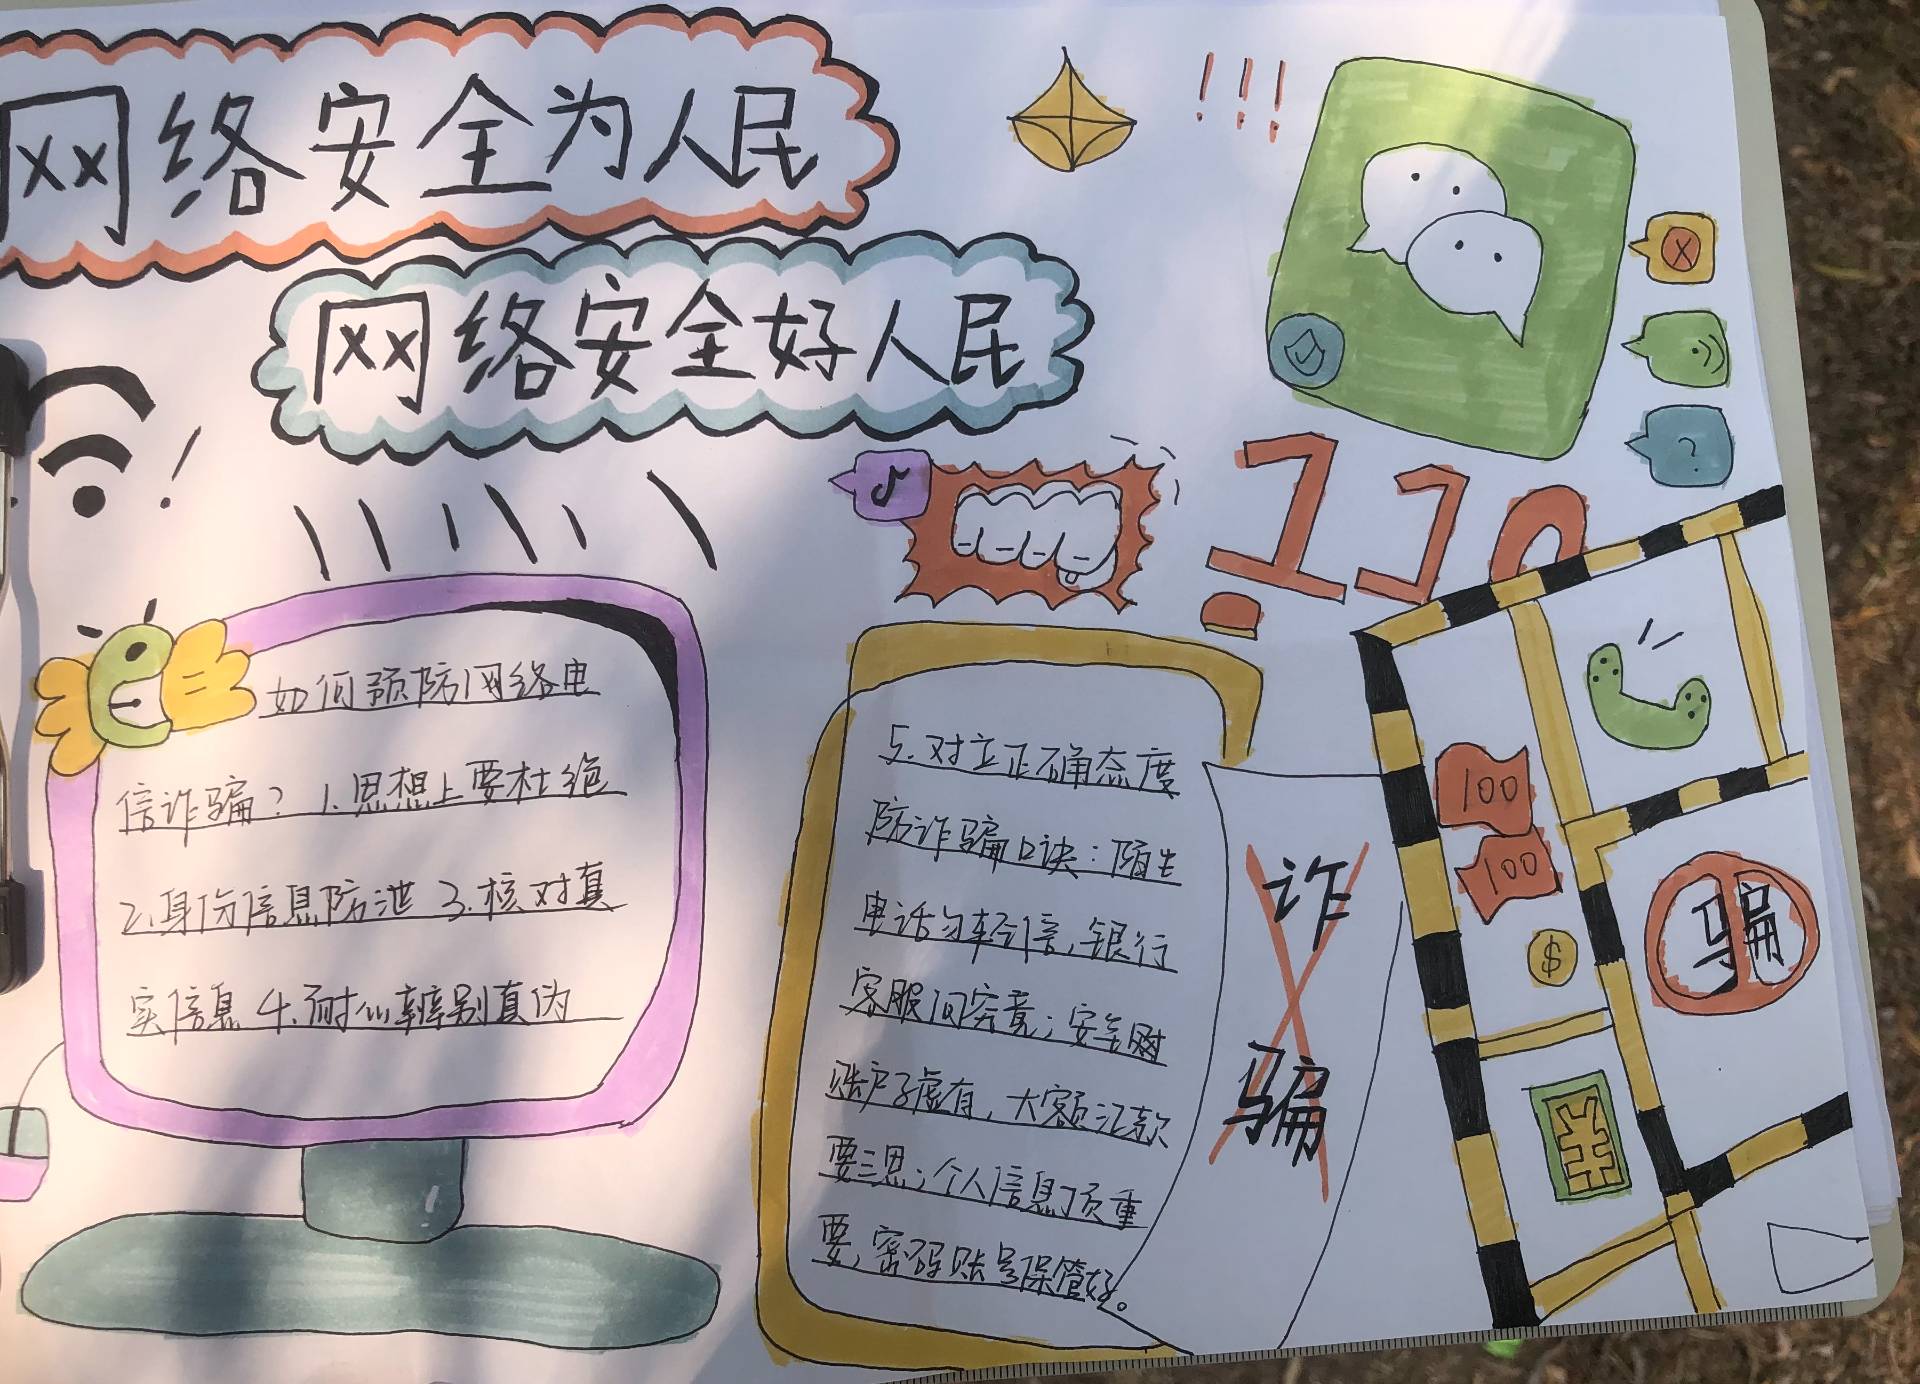 网络安全为人民
网络安全好人民
!!!
110
如何预防网络电
信诈骗？ 1.思想上要杜绝
2.身份信息防泄 3.核对真
实信息 4.耐心辨别真伪
5.对立正确态度
防诈骗口诀：陌生
电话勿轻信，银行
客服问究竟；安全
账户子虚有，大额汇款
要三思；个人信息顶重
要，密码账号保管好。
诈
骗
100
100
$
¥
骗